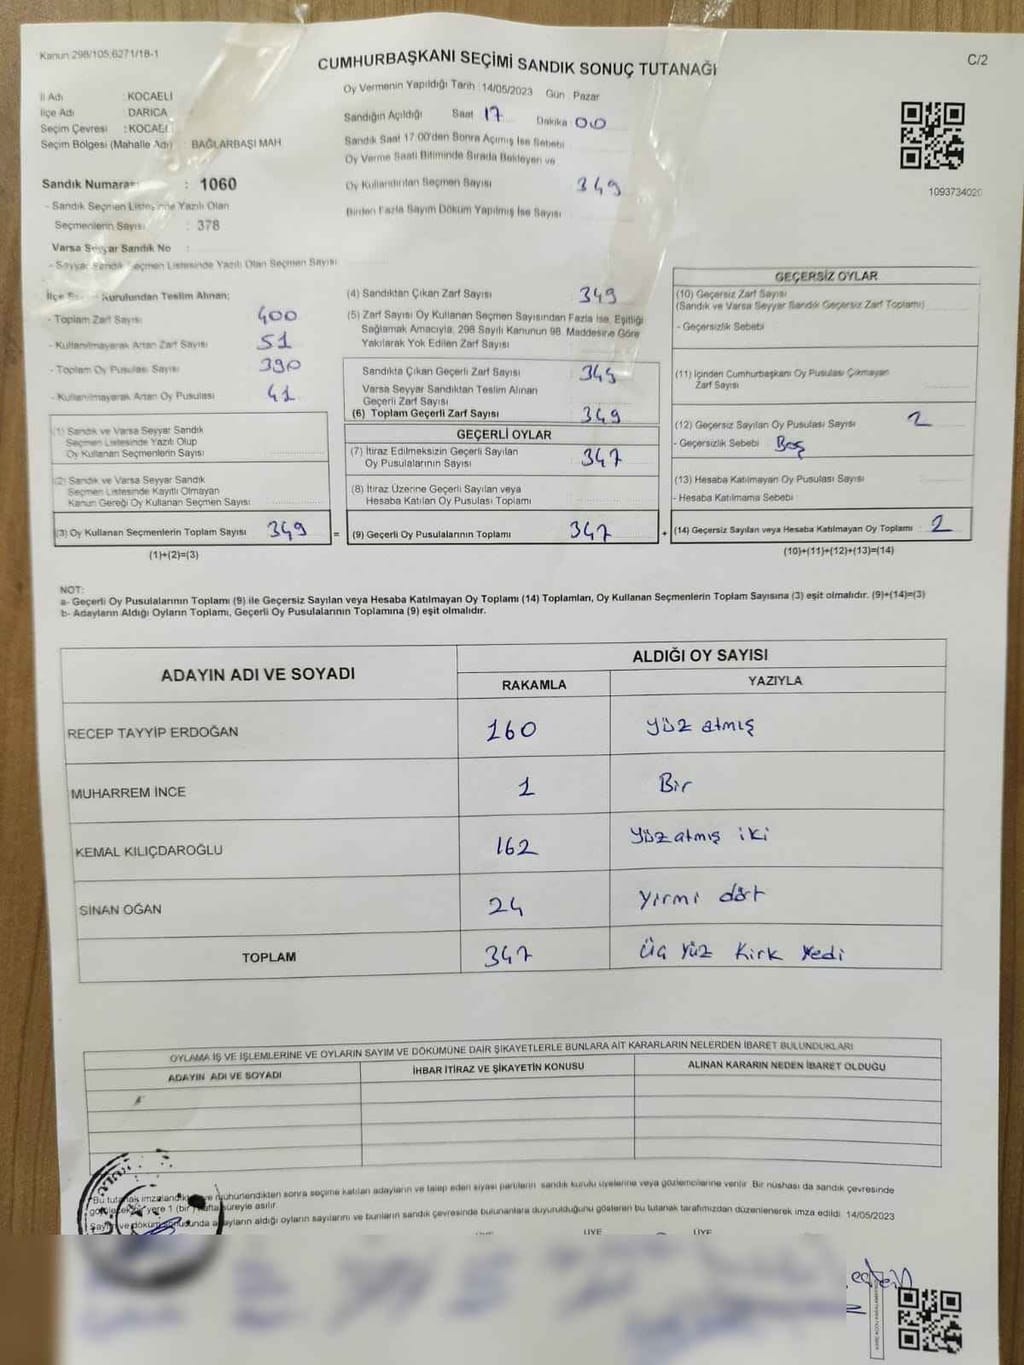 Kanun 298/105,6271/18-1
CUMHURBAŞKANI SEÇİMİ SANDIK SONUÇ TUTANAĞI
C/2
İl Adı : KOCAELİ
İlçe Adı : DARICA
Seçim Çevresi : KOCAELİ
Seçim Bölgesi (Mahalle Adı) : BAĞLARBAŞI MAH
Sandık Numarası : 1060
- Sandık Seçmen Listesinde Yazılı Olan
Seçmenlerin Sayısı : 378
Varsa Seyyar Sandık No :
- Seyyar Sandık Seçmen Listesinde Yazılı Olan Seçmen Sayısı
Oy Vermenin Yapıldığı Tarih : 14/05/2023 Gün : Pazar
Sandığın Açıldığı Saat 17 Dakika 00
Sandık Saat 17:00'den Sonra Açılmış İse Sebebi
Oy Verme Saati Bitiminde Sırada Bekleyen ve
Oy Kullandırılan Seçmen Sayısı 349
Birden Fazla Sayım Döküm Yapılmış İse Sayısı
1093734020
İlçe Kurulundan Teslim Alınan;
- Toplam Zarf Sayısı 400
- Kullanılmayarak Artan Zarf Sayısı 51
- Toplam Oy Pusulası Sayısı 390
- Kullanılmayarak Artan Oy Pusulası 41
(1) Sandık ve Varsa Seyyar Sandık
Seçmen Listesinde Yazılı Olup
Oy Kullanan Seçmenlerin Sayısı
(2) Sandık ve Varsa Seyyar Sandık
Seçmen Listesinde Kayıtlı Olmayan
Kanun Gereği Oy Kullanan Seçmen Sayısı
(3) Oy Kullanan Seçmenlerin Toplam Sayısı 349 =
(1)+(2)=(3)
(4) Sandıktan Çıkan Zarf Sayısı 349
(5) Zarf Sayısı Oy Kullanan Seçmen Sayısından Fazla İse, Eşitliği
Sağlamak Amacıyla, 298 Sayılı Kanunun 98. Maddesine Göre
Yakılarak Yok Edilen Zarf Sayısı
Sandıkta Çıkan Geçerli Zarf Sayısı 349
Varsa Seyyar Sandıktan Teslim Alınan
Geçerli Zarf Sayısı
(6) Toplam Geçerli Zarf Sayısı 349
GEÇERLİ OYLAR
(7) İtiraz Edilmeksizin Geçerli Sayılan
Oy Pusulalarının Sayısı 347
(8) İtiraz Üzerine Geçerli Sayılan veya
Hesaba Katılan Oy Pusulası Toplamı
(9) Geçerli Oy Pusulalarının Toplamı 347 +
GEÇERSİZ OYLAR
(10) Geçersiz Zarf Sayısı
(Sandık ve Varsa Seyyar Sandık Geçersiz Zarf Toplamı)
- Geçersizlik Sebebi
(11) İçinden Cumhurbaşkanı Oy Pusulası Çıkmayan
Zarf Sayısı
(12) Geçersiz Sayılan Oy Pusulası Sayısı 2
- Geçersizlik Sebebi Boş
(13) Hesaba Katılmayan Oy Pusulası Sayısı
- Hesaba Katılmama Sebebi
(14) Geçersiz Sayılan veya Hesaba Katılmayan Oy Toplamı 2
(10)+(11)+(12)+(13)=(14)
NOT:
a- Geçerli Oy Pusulalarının Toplamı (9) ile Geçersiz Sayılan veya Hesaba Katılmayan Oy Toplamı (14) Toplamları, Oy Kullanan Seçmenlerin Toplam Sayısına (3) eşit olmalıdır. (9)+(14)=(3)
b- Adayların Aldığı Oyların Toplamı, Geçerli Oy Pusulalarının Toplamına (9) eşit olmalıdır.
ADAYIN ADI VE SOYADI
ALDIĞI OY SAYISI
RAKAMLA YAZIYLA
RECEP TAYYİP ERDOĞAN 160 Yüz atmış
MUHARREM İNCE 1 Bir
KEMAL KILIÇDAROĞLU 162 Yüz atmış iki
SİNAN OĞAN 24 Yirmi dört
TOPLAM 347 Üç Yüz Kırk Yedi
OYLAMA İŞ VE İŞLEMLERİNE VE OYLARIN SAYIM VE DÖKÜMÜNE DAİR ŞİKAYETLERLE BUNLARA AİT KARARLARIN NELERDEN İBARET BULUNDUKLARI
ADAYIN ADI VE SOYADI İHBAR İTİRAZ VE ŞİKAYETİN KONUSU ALINAN KARARIN NEDEN İBARET OLDUĞU
Bu tutanak imzalandıktan ve mühürlendikten sonra seçime katılan adayların ve talep eden siyasi partilerin sandık kurulu üyelerine veya gözlemcilerine verilir. Bir nüshası da sandık çevresinde
yere 1 (bir) hafta süreyle asılır.
Sayım ve döküm konusunda adayların aldığı oyların sayılarını ve bunların sandık çevresinde bulunanlara duyurulduğunu gösteren bu tutanak tarafımızdan düzenlenerek imza edildi. 14/05/2023
ÜYE ÜYE